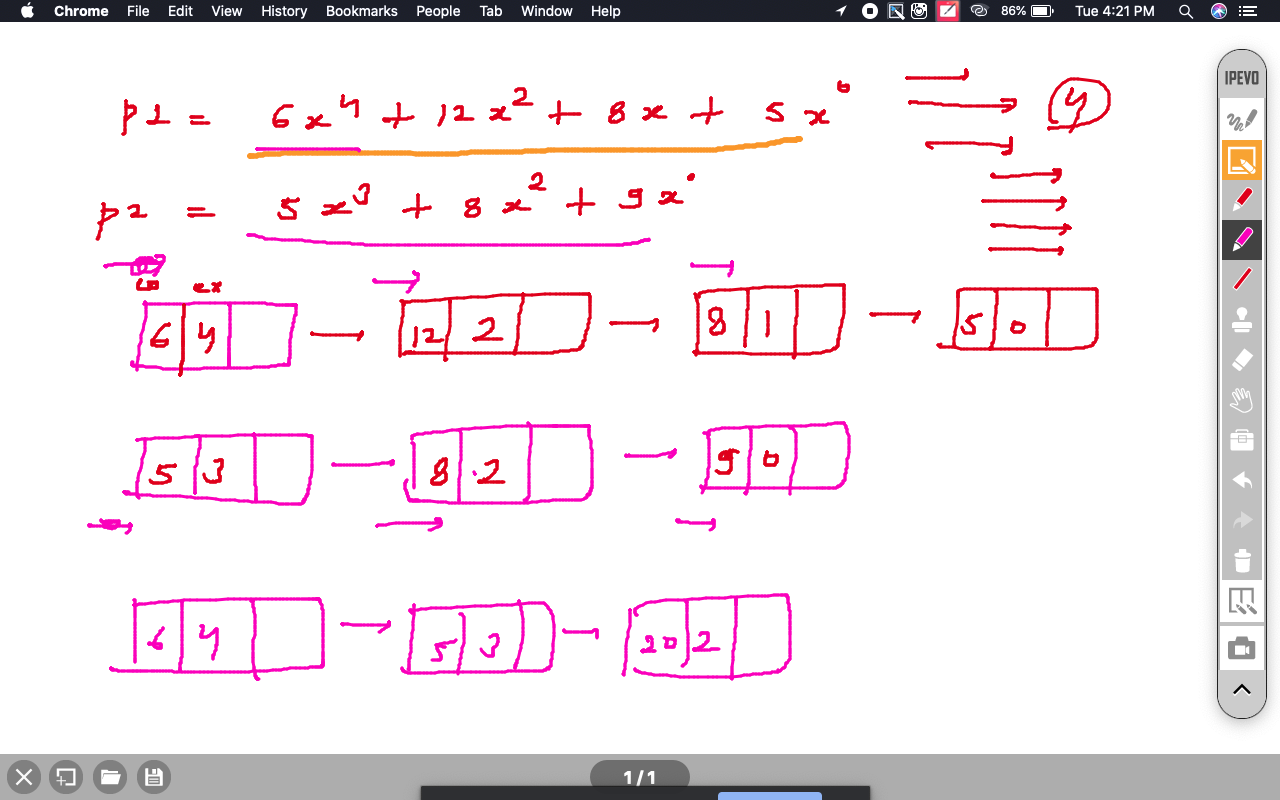 Chrome File Edit View History Bookmarks People Tab Window Help 86% Tue 4:21 PM
IPEVO
p1 = 6x⁴ + 12x² + 8x + 5x⁰ 4
p2 = 5x³ + 8x² + 9x⁰
co ex
6 4 → 12 2 → 8 1 → 5 0
5 3 → 8 2 → 9 0
6 4 → 5 3 → 20 2
1/1